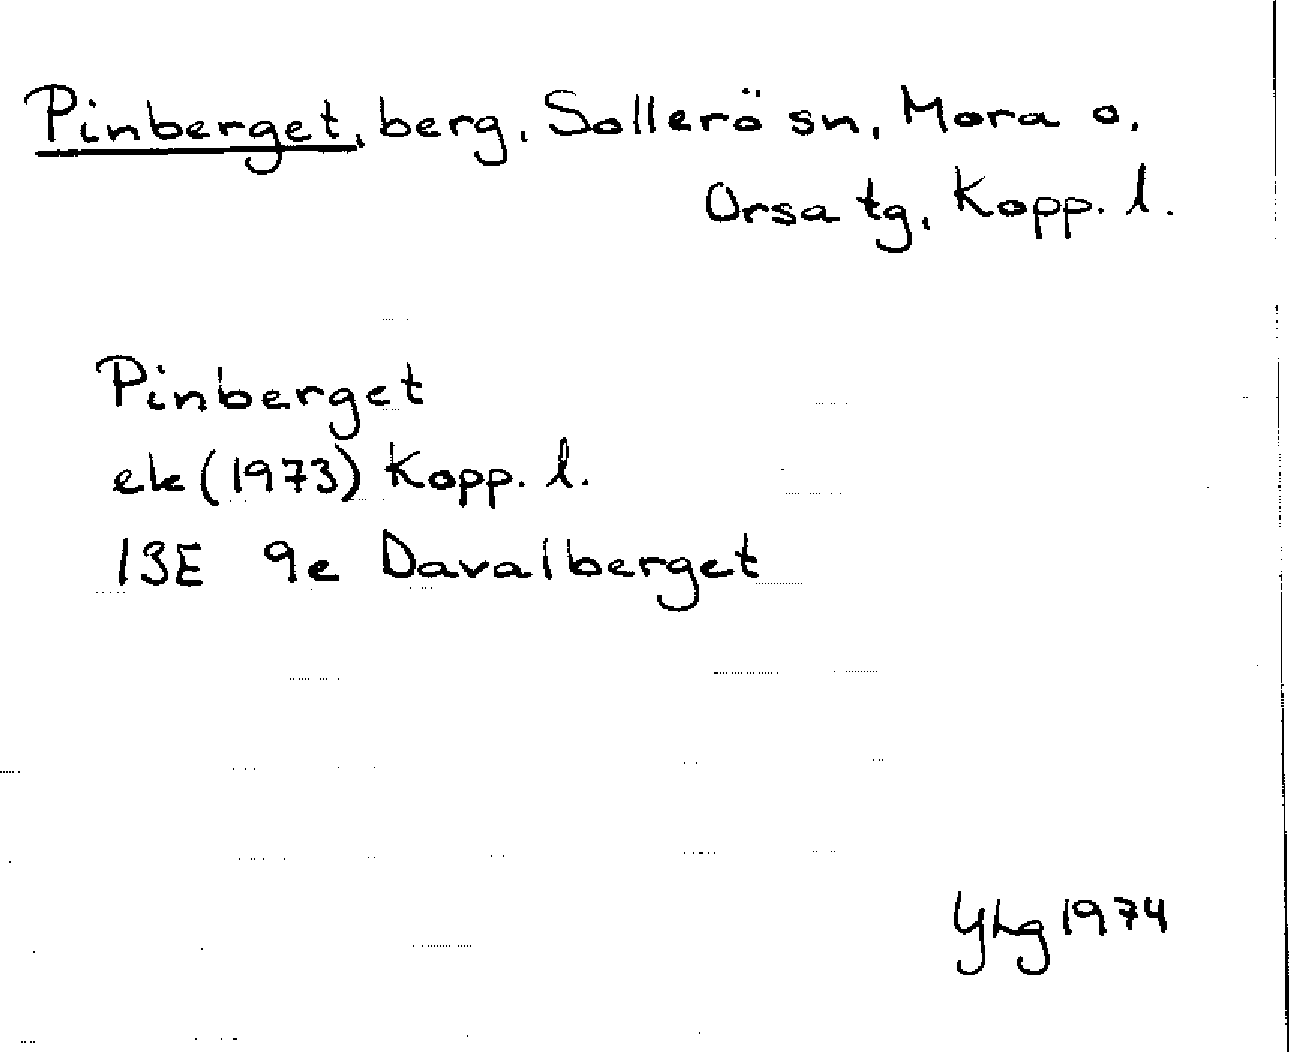 Pinberget, berg, Sollerö sn, Mora o.
Orsa tg, Kopp. l.
Pinberget
ek (1973) Kopp. l.
13E 9e Davalberget
YLg 1974